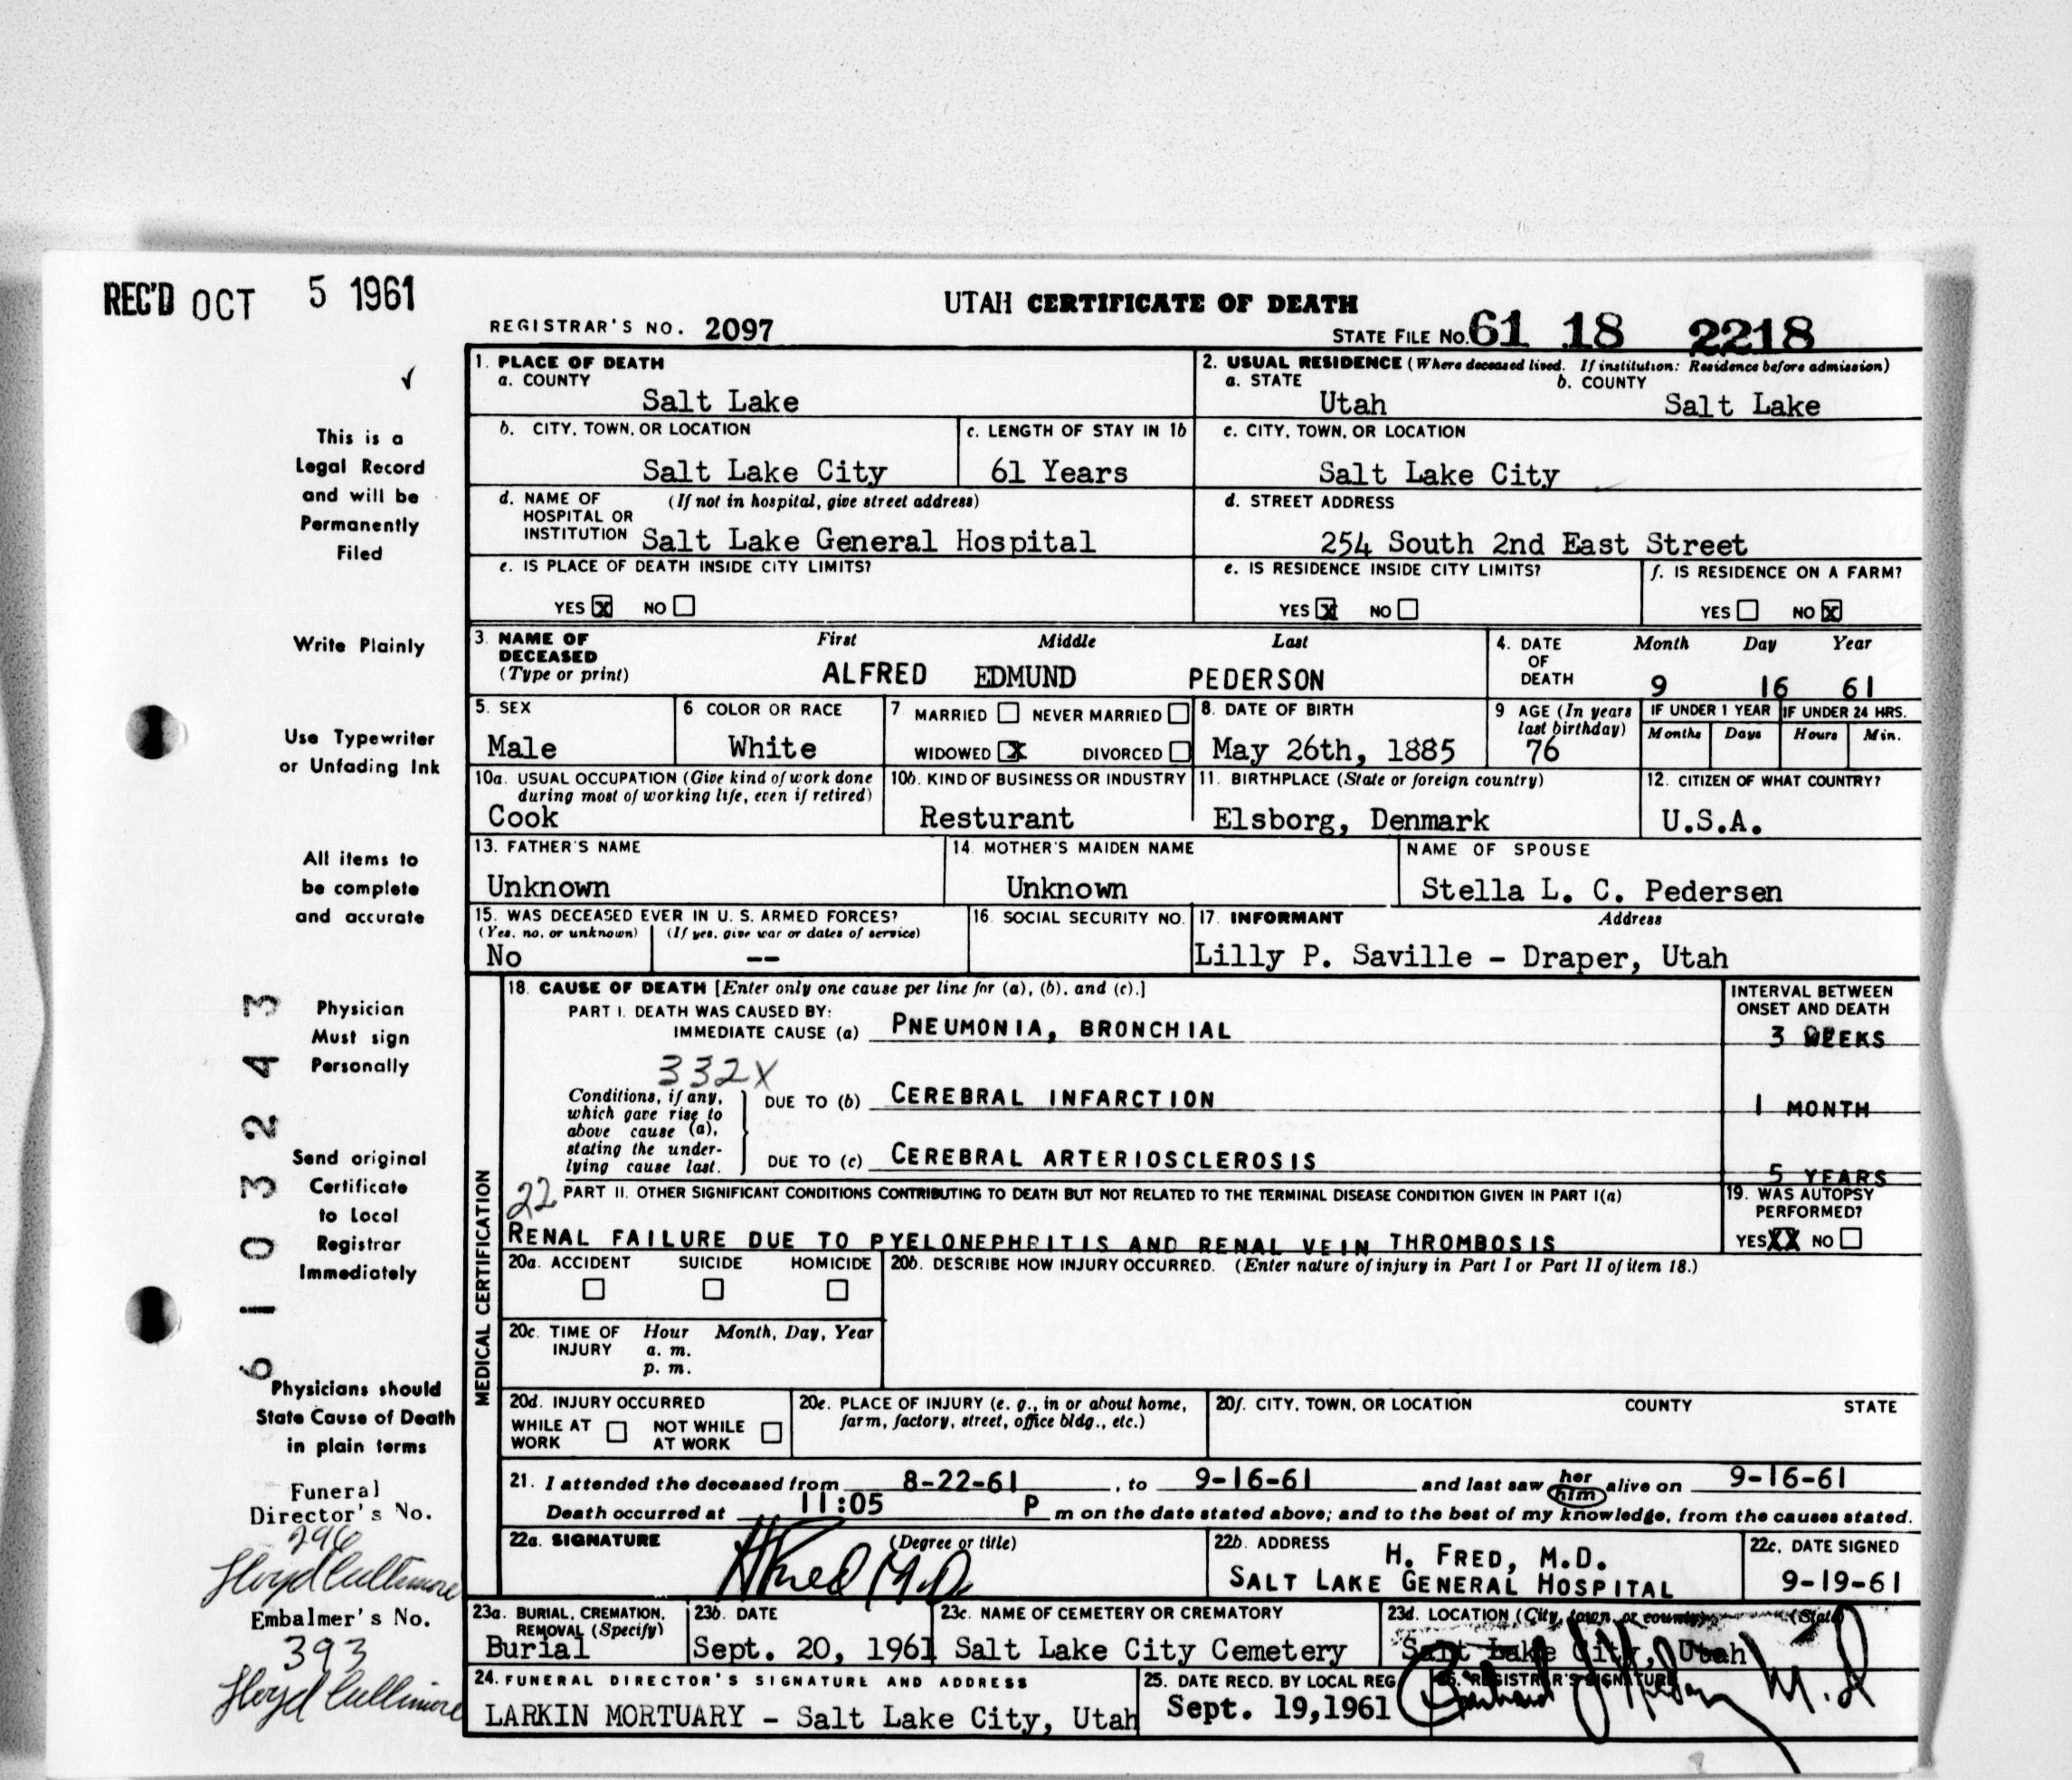 REC'D OCT 5 1961
UTAH CERTIFICATE OF DEATH
REGISTRAR'S NO. 2097
STATE FILE No. 61 18 2218
✓
This is a
Legal Record
and will be
Permanently
Filed
Write Plainly
Use Typewriter
or Unfading Ink
All items to
be complete
and accurate
Physician
Must sign
Personally
Send original
Certificate
to Local
Registrar
Immediately
Physicians should
State Cause of Death
in plain terms
61032243
Funeral
Director's No.
296
Floyd Cullimore
Embalmer's No.
393
Floyd Cullimore
1. PLACE OF DEATH
a. COUNTY
Salt Lake
2. USUAL RESIDENCE (Where deceased lived. If institution: Residence before admission)
a. STATE b. COUNTY
Utah Salt Lake
b. CITY, TOWN, OR LOCATION
Salt Lake City
c. LENGTH OF STAY IN 1b
61 Years
c. CITY, TOWN, OR LOCATION
Salt Lake City
d. NAME OF (If not in hospital, give street address)
HOSPITAL OR
INSTITUTION Salt Lake General Hospital
d. STREET ADDRESS
254 South 2nd East Street
e. IS PLACE OF DEATH INSIDE CITY LIMITS?
YES X NO
e. IS RESIDENCE INSIDE CITY LIMITS?
YES X NO
f. IS RESIDENCE ON A FARM?
YES NO X
3. NAME OF First Middle Last
DECEASED
(Type or print) ALFRED EDMUND PEDERSON
4. DATE Month Day Year
OF
DEATH 9 16 61
5. SEX
Male
6. COLOR OR RACE
White
7 MARRIED NEVER MARRIED
WIDOWED X DIVORCED
8. DATE OF BIRTH
May 26th, 1885
9 AGE (In years
last birthday)
76
IF UNDER 1 YEAR
Months Days
IF UNDER 24 HRS.
Hours Min.
10a. USUAL OCCUPATION (Give kind of work done
during most of working life, even if retired)
Cook
10b. KIND OF BUSINESS OR INDUSTRY
Resturant
11. BIRTHPLACE (State or foreign country)
Elsborg, Denmark
12. CITIZEN OF WHAT COUNTRY?
U.S.A.
13. FATHER'S NAME
Unknown
14. MOTHER'S MAIDEN NAME
Unknown
NAME OF SPOUSE
Stella L. C. Pedersen
15. WAS DECEASED EVER IN U. S. ARMED FORCES?
(Yes, no, or unknown) (If yes, give war or dates of service)
No --
16. SOCIAL SECURITY NO.
17. INFORMANT Address
Lilly P. Saville - Draper, Utah
MEDICAL CERTIFICATION
18. CAUSE OF DEATH [Enter only one cause per line for (a), (b), and (c).]
INTERVAL BETWEEN
ONSET AND DEATH
PART I. DEATH WAS CAUSED BY:
IMMEDIATE CAUSE (a) PNEUMONIA, BRONCHIAL 3 WEEKS
332X
Conditions, if any,
which gave rise to
above cause (a),
stating the under-
lying cause last.
DUE TO (b) CEREBRAL INFARCTION 1 MONTH
DUE TO (c) CEREBRAL ARTERIOSCLEROSIS 5 YEARS
22
PART II. OTHER SIGNIFICANT CONDITIONS CONTRIBUTING TO DEATH BUT NOT RELATED TO THE TERMINAL DISEASE CONDITION GIVEN IN PART I(a)
RENAL FAILURE DUE TO PYELONEPHRITIS AND RENAL VEIN THROMBOSIS
19. WAS AUTOPSY
PERFORMED?
YES XX NO
20a. ACCIDENT SUICIDE HOMICIDE
20b. DESCRIBE HOW INJURY OCCURRED. (Enter nature of injury in Part I or Part II of item 18.)
20c. TIME OF Hour Month, Day, Year
INJURY a. m.
p. m.
20d. INJURY OCCURRED
WHILE AT NOT WHILE
WORK AT WORK
20e. PLACE OF INJURY (e. g., in or about home,
farm, factory, street, office bldg., etc.)
20f. CITY, TOWN, OR LOCATION COUNTY STATE
21. I attended the deceased from 8-22-61, to 9-16-61 and last saw her him alive on 9-16-61
Death occurred at 11:05 P m on the date stated above; and to the best of my knowledge, from the causes stated.
22a. SIGNATURE (Degree or title)
H Fred M.D.
22b. ADDRESS H. FRED, M.D.
SALT LAKE GENERAL HOSPITAL
22c. DATE SIGNED
9-19-61
23a. BURIAL, CREMATION,
REMOVAL (Specify)
Burial
23b. DATE
Sept. 20, 1961
23c. NAME OF CEMETERY OR CREMATORY
Salt Lake City Cemetery
23d. LOCATION (City, town, or county) (State)
Salt Lake City, Utah
24. FUNERAL DIRECTOR'S SIGNATURE AND ADDRESS
LARKIN MORTUARY - Salt Lake City, Utah
25. DATE RECD. BY LOCAL REG
Sept. 19,1961
26. REGISTRAR'S SIGNATURE
M.D